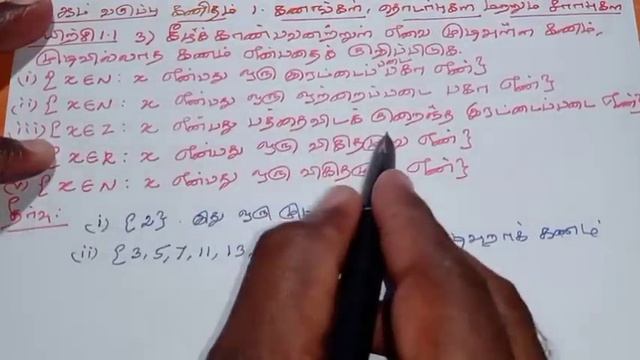 ஆம் வகுப்பு கணிதம் 1. கணங்கள், தொடர்புகள் மற்றும் சார்புகள்
பயிற்சி 1.1 3) கீழ்க்காண்பவனற்றுள் எவை முடிவுள்ள கணம்,
முடிவில்லாத கணம் என்பதைக் குறிப்பிடுக.
(i) { x ∈ N : x என்பது ஒரு இரட்டைப்படை பகா எண் }
(ii) { x ∈ N : x என்பது ஒரு ஒற்றைப்படை பகா எண் }
(iii) { x ∈ Z : x என்பது பத்தைவிடக் குறைந்த இரட்டைப்படை எண் }
{ x ∈ R : x என்பது ஒரு விகிதமுறு எண் }
(v) { x ∈ N : x என்பது ஒரு விகிதமுறு எண் }
தீர்வு :
(i) { 2 } . இது ஒரு
(ii) { 3, 5, 7, 11, 13, கணம்